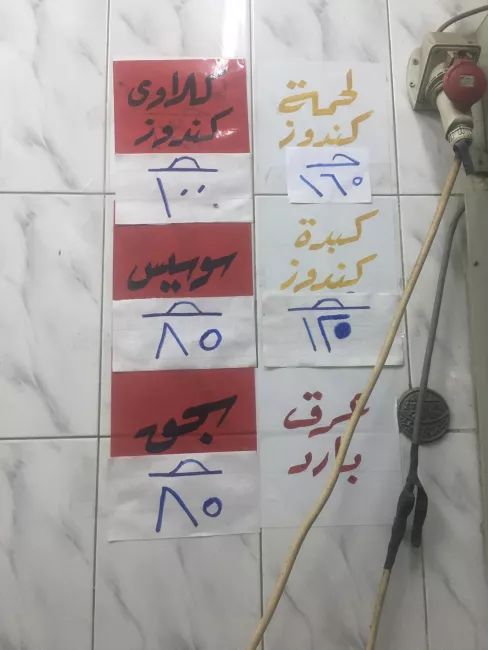 لحمة
كندوز
١٦٥
كلاوى
كندوز
١٠٠
كبدة
كندوز
سوسيس
٨٥
عرق
بارد
سجق
٨٥